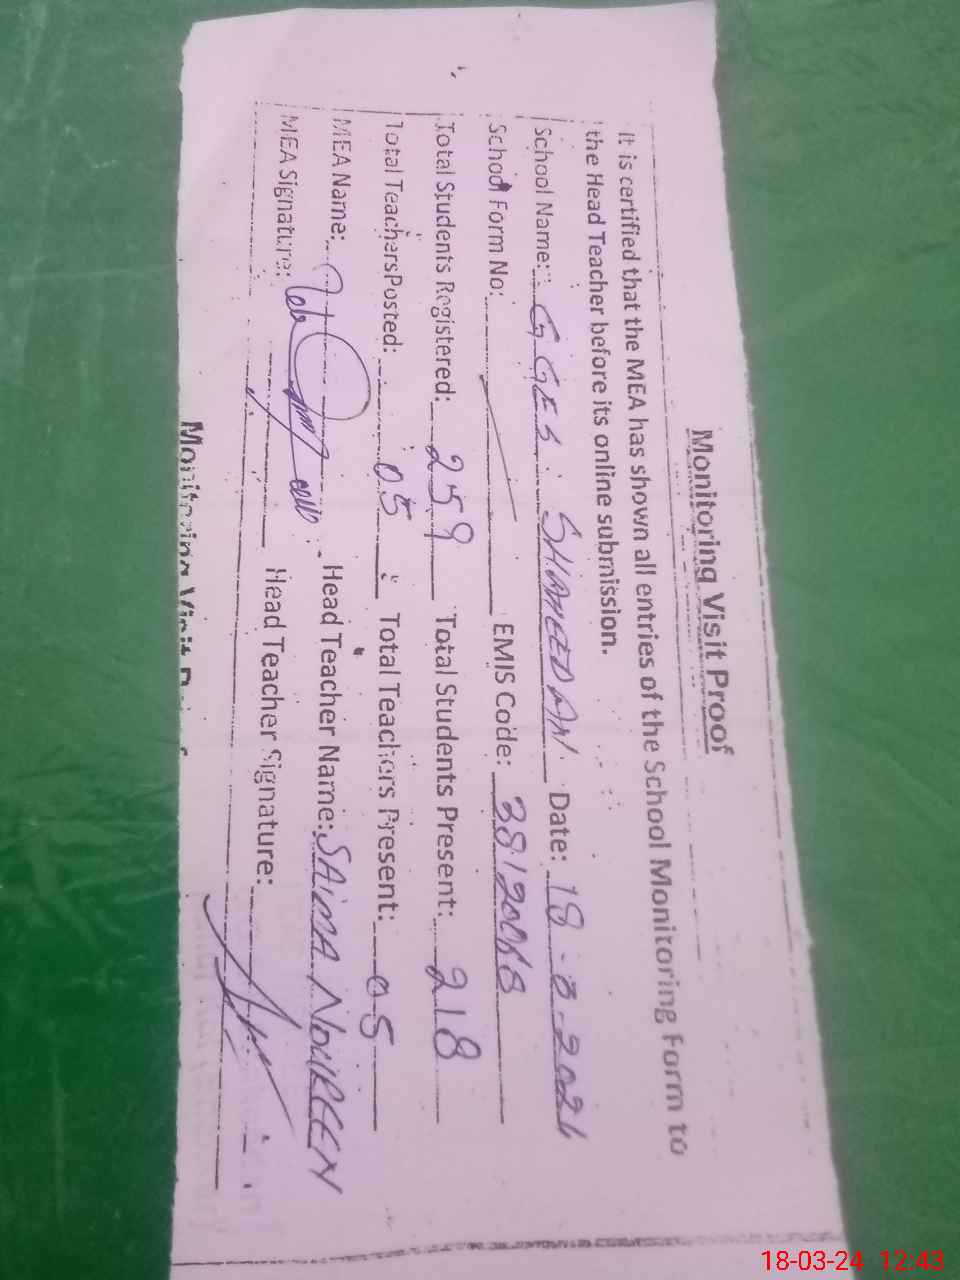 Monitoring Visit Proof
It is certified that the MEA has shown all entries of the School Monitoring Form to
the Head Teacher before its online submission.
School Name: GGES. SHAMEEDAN Date: 18-
School Form No: EMIS Code:
Total Students Registered: 259 Total Students Present: 218
Total Teachers Posted: 05 Total Teachers Present: 05
MEA Name: Head Teacher Name: SAIMA NOUREEN
MEA Signature: Head Teacher Signature:
Monitoring Visit
18-03-24 12:43